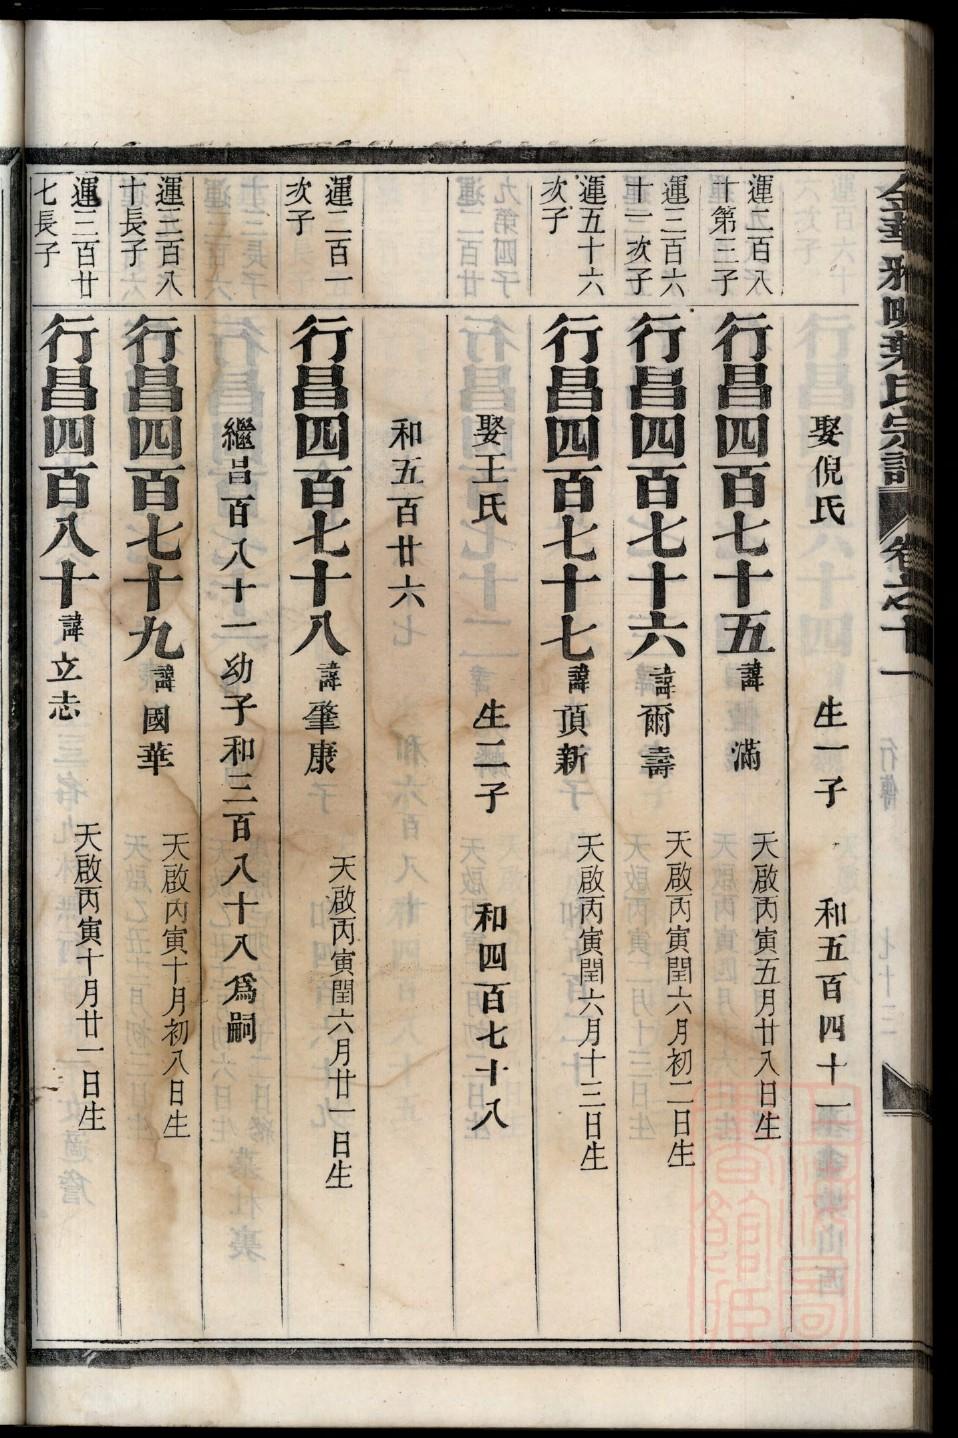 金華雅畈葉氏宗譜 卷之十一 行傳 七十三
娶倪氏 生一子 和五百四十一
運五百八十第三子
行昌四百七十五 諱滿 天啟丙寅五月廿八日生
運三百六十一次子
行昌四百七十六 諱爾壽 天啟丙寅閏六月初二日生
運五十六次子
行昌四百七十七 諱頂新 天啟丙寅閏六月十三日生
娶王氏 生二子 和四百七十八
和五百廿六
運二百一次子
行昌四百七十八 諱肇康 天啟丙寅閏六月廿一日生
繼昌百八十二幼子和三百八十八為嗣
運三百八十長子
行昌四百七十九 諱國華 天啟丙寅十月初八日生
運三百廿七長子
行昌四百八十 諱立志 天啟丙寅十月廿一日生